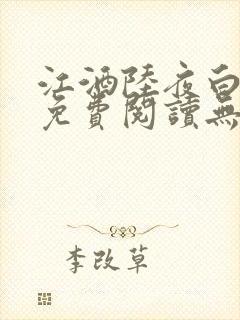 江酒陸夜白
免費閱讀無
李改草